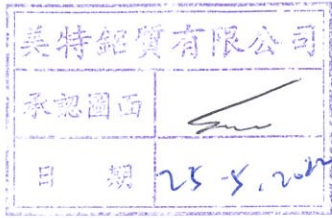 美特鋁質有限公司
承認圖面
日 期 25-5,2022